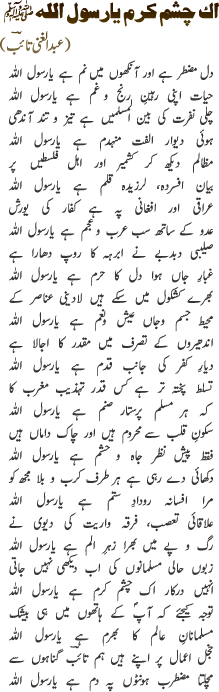 اک چشم کرم یا رسول الله ﷺ
(عبدالغنی تائب)
دل مضطر ہے اور آنکھوں میں نم ہے یارسول اللہ
حیات اپنی رہین رنج و غم ہے یارسول اللہ
چلی نفرت کی بین المسلمیں ہے تیز و تند آندھی
ہوئی دیوار الفت منہدم ہے یارسول اللہ
مظالم دیکھ کر کشمیر اور اہل فلسطیں پر
بیاں افسردہ، لرزیدہ قلم ہے یارسول اللہ
عراقی اور افغانی پہ ہے کفار کی یورش
عدو کے ساتھ سب عرب و عجم ہے یارسول اللہ
صلیبی دبدبے نے ابرہہ کا روپ دھارا ہے
غبار جاں ہوا دل کا حرم ہے یارسول اللہ
بھرے کشکول میں سکے ہیں لادینی عناصر کے
محیط جسم و جاں عیش و نعم ہے یارسول اللہ
اندھیروں کے تصرف میں مقدر کا اجالا ہے
دیار کفر کی جانب قدم ہے یارسول اللہ
تسلط پختہ تر ہے کس قدر تہذیب مغرب کا
کہ ہر مسلم پرستار صنم ہے یارسول اللہ
سکون قلب سے محروم ہیں اور چاک داماں ہیں
فقط پیش نظر جاہ و حشم ہے یارسول اللہ
دکھائی دے رہی ہے ہر طرف کرب و بلا مجھ کو
مرا افسانہ روداد ستم ہے یارسول اللہ
علاقائی تعصب، فرقہ واریت کی دیوی نے
رگ و پے میں بھرا زہر الم ہے یارسول اللہ
زبوں حالی مسلمانوں کی اب دیکھی نہیں جاتی
انہیں درکار اک چشم کرم ہے یارسول اللہ
توجہ کیجئے کہ آپؐ کے ہاتھوں میں ہی بیشک
مسلمانان عالم کا بھرم ہے یارسول اللہ
خجل اعمال پر اپنے ہیں ہم تائبؔ گناہوں سے
مچلتا مضطرب ہونٹوں پہ دم ہے یارسول اللہ